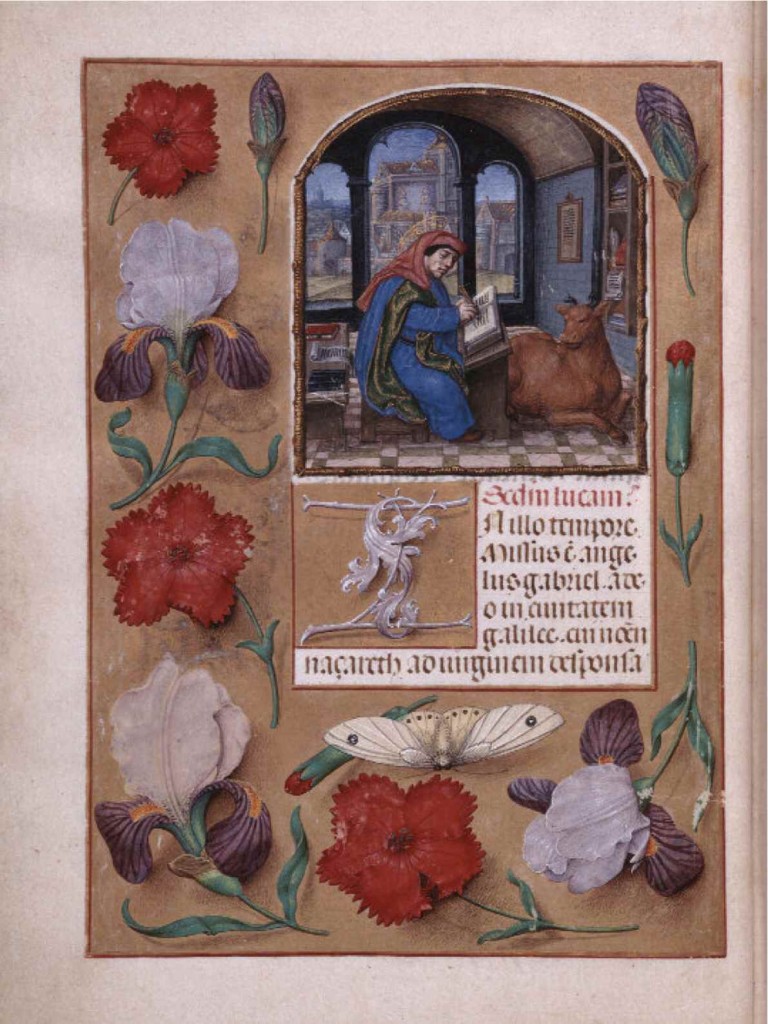 Secdm lucam
IN illo tempore.
Missus ē ange
lus gabriel. a de
o in ciuitatem
galilee. cui nōen
naçareth ad uirginem desponsa